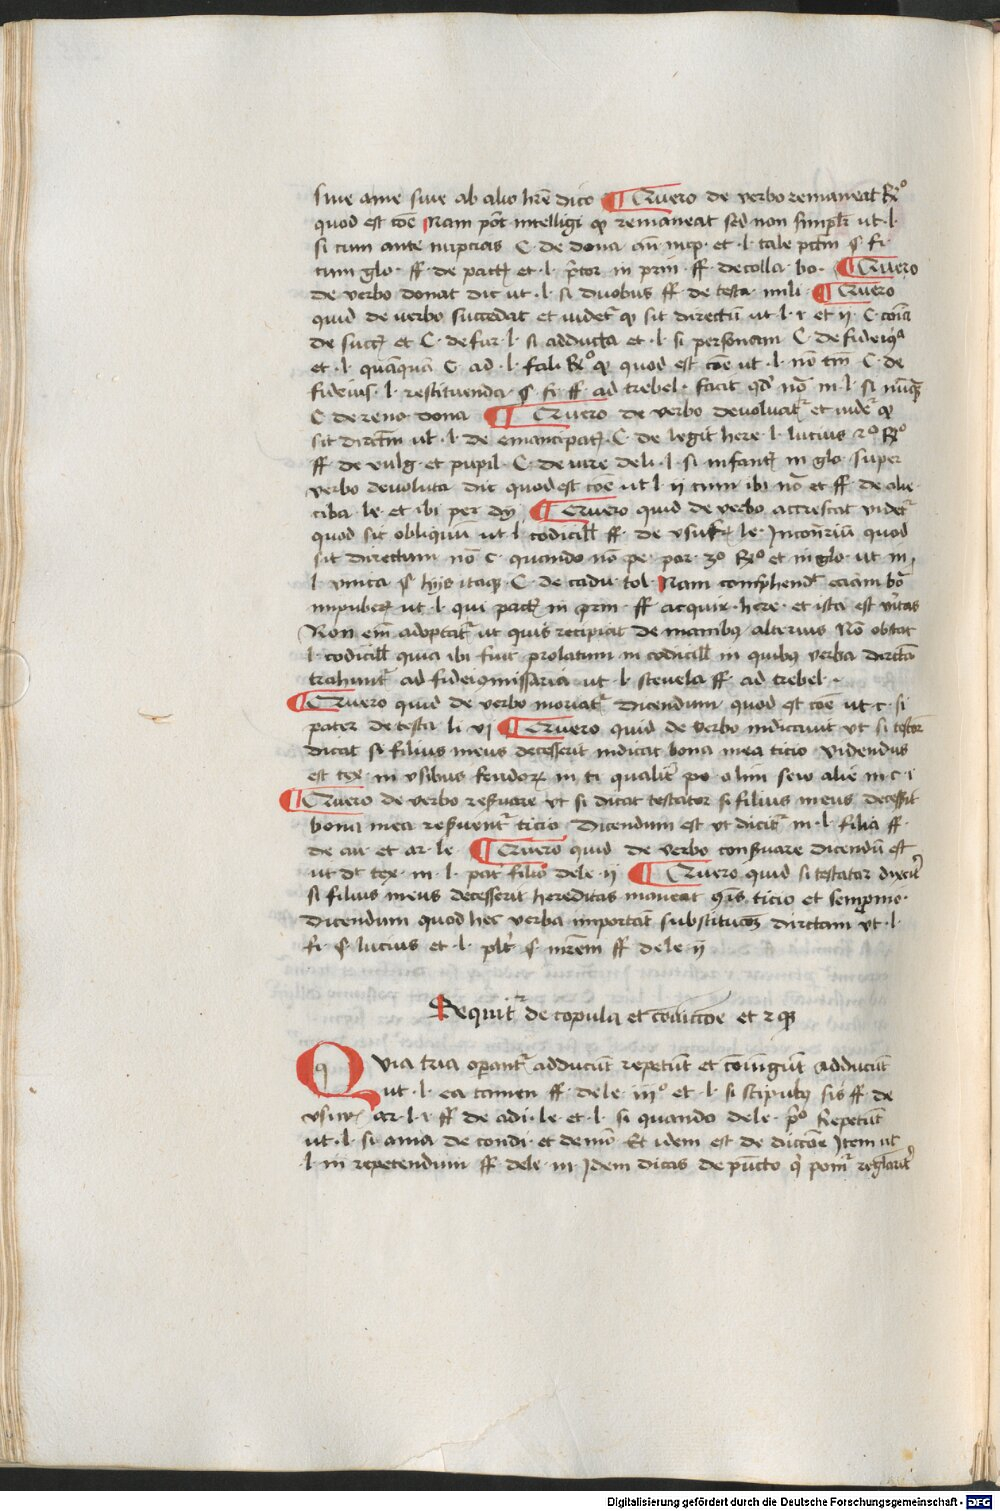 siue a me siue ab alio hr̃e dico ¶ Quero de verbo remaneat Rͦ
quod est cõe Nam põt intelligi qͥ remaneat sed non simplr̃ ut · l ·
si cum ante nupcias C · de dona añ nup · et · l · tale pctm̃ § fi ·
cum glo · ff · de pact et · l · p̃tor in prin · ff · de colla · bo · ¶ Quero
de verbo donat dic ut · l · si duobus ff · de testa · mili · ¶ Quero
quid de verbo succedat et videt qͥ sit directũ ut · l · i · et ii · C · cõia
de succ et C · de fur · l · si adducta et · l · si personam C · de fideiuͦ
et · l · quãquã C · ad · l · fali Rͦ qͥ quod est cõe ut · l · nõ tm̃ C · de
fideiuſ · l · restituenda · § · fi · ff · ad trebel · facit qd̓ no᷑ in · l · si nũqᷓ
C · de reuo · dona ¶ Quero de verbo deuoluat᷑ et videt᷑ qͥ
sit dirctm̃ ut · l · de emancipat · C · de legit · here · l · lucius 2ͦ Rͦ
ff · de vulg · et pupil · C · de iure deli · l · si infant in glo · super
verbo deuoluta dic quod est cõe ut · l · ii cum ibi no᷑ et ff · de alie ·
ciba · le · et ibi per dy ¶ Quero quid de verbo accrescat videt᷑
quod sit obliquũ ut · l · codicill ff · de vsufr · le · In cõriũ quod
sit directum nõ C · quando nõ pe · par · 3ͦ Rͦ et in glo · ut in
l · vnica § hiis itaqꝫ · C · de cadu · tol · Nam comp̃hend᷑ eciam bõ
impuber ut · l · qui patr in prin · ff · acquir · here · et ista est v̓itas
Non em̃ adoptat᷑ ut quis recipiat de manibꝰ alterius Nõ obstat
l · codicill quia ibi fuit prolatum in codicill in quibꝰ verba dircta
trahunt᷑ ad fideicͦmissaria ut · l · sceuola ff · ad trebel ·
¶ Quero quid de verbo moriat᷑ dicendum quod est cõe ut · c · si
pater de testa · li · vj ¶ Quero quid de verbo indicauit vt si testor̃
dicat si filius meus decesserit indicat bona mea ticio videndus
est tex · in vsibus feudor in ti · qualit̓ po · olim feu · alie · in · c · i
¶ Quero de verbo res̓uare vt si dicat testator si filius meus decessit
bona mea res̓uent᷑ ticio Dicendum est vt dicit᷑ in · l · filia ff ·
de au · et ar · le · ¶ Quero quid de verbo cons̓uare dicendũ est
ut dt̃ tex · in · l · pat̓ filio de le · ii ¶ Quero quid si testator dixit̓
si filius meus decesserit hereditas maneat ꝯis ticio et sempronio ·
Dicendum quod hec verba important substitucõm dirctam vt · l ·
fi · § lucius et · l · plr̃ § mr̃em ff de le · ii
Requit᷑ de copula et cõiuccõe et 2 qꝫ
QVia tria op̓ant᷑ adducũt repetũt et cõiungũt Adducũt
ut · l · ea tamen ff · de le · iiiͦ · et · l · si stipulꝰ sis ff · de
vsur ar · l · i · ff · de adi · le · et · l · si quando de le · p̓ͦ Repetũt
ut · l · si ama de condi · et demõ Et idem est de diccõe Item ut
l · in repetendum ff · de le · iii Idem dicas de pũcto qͥ ponit᷑ reglarit̓
Digitalisierung gefördert durch die Deutsche Forschungsgemeinschaft - DFG